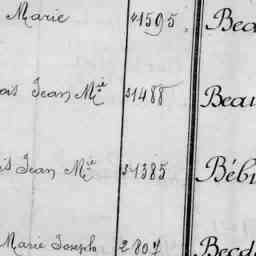 Marie 1595 Bea
Jean M.ie 1488 Beau
Jean M.ie 1385 Bébi
Marie Joseph 2807 Becd